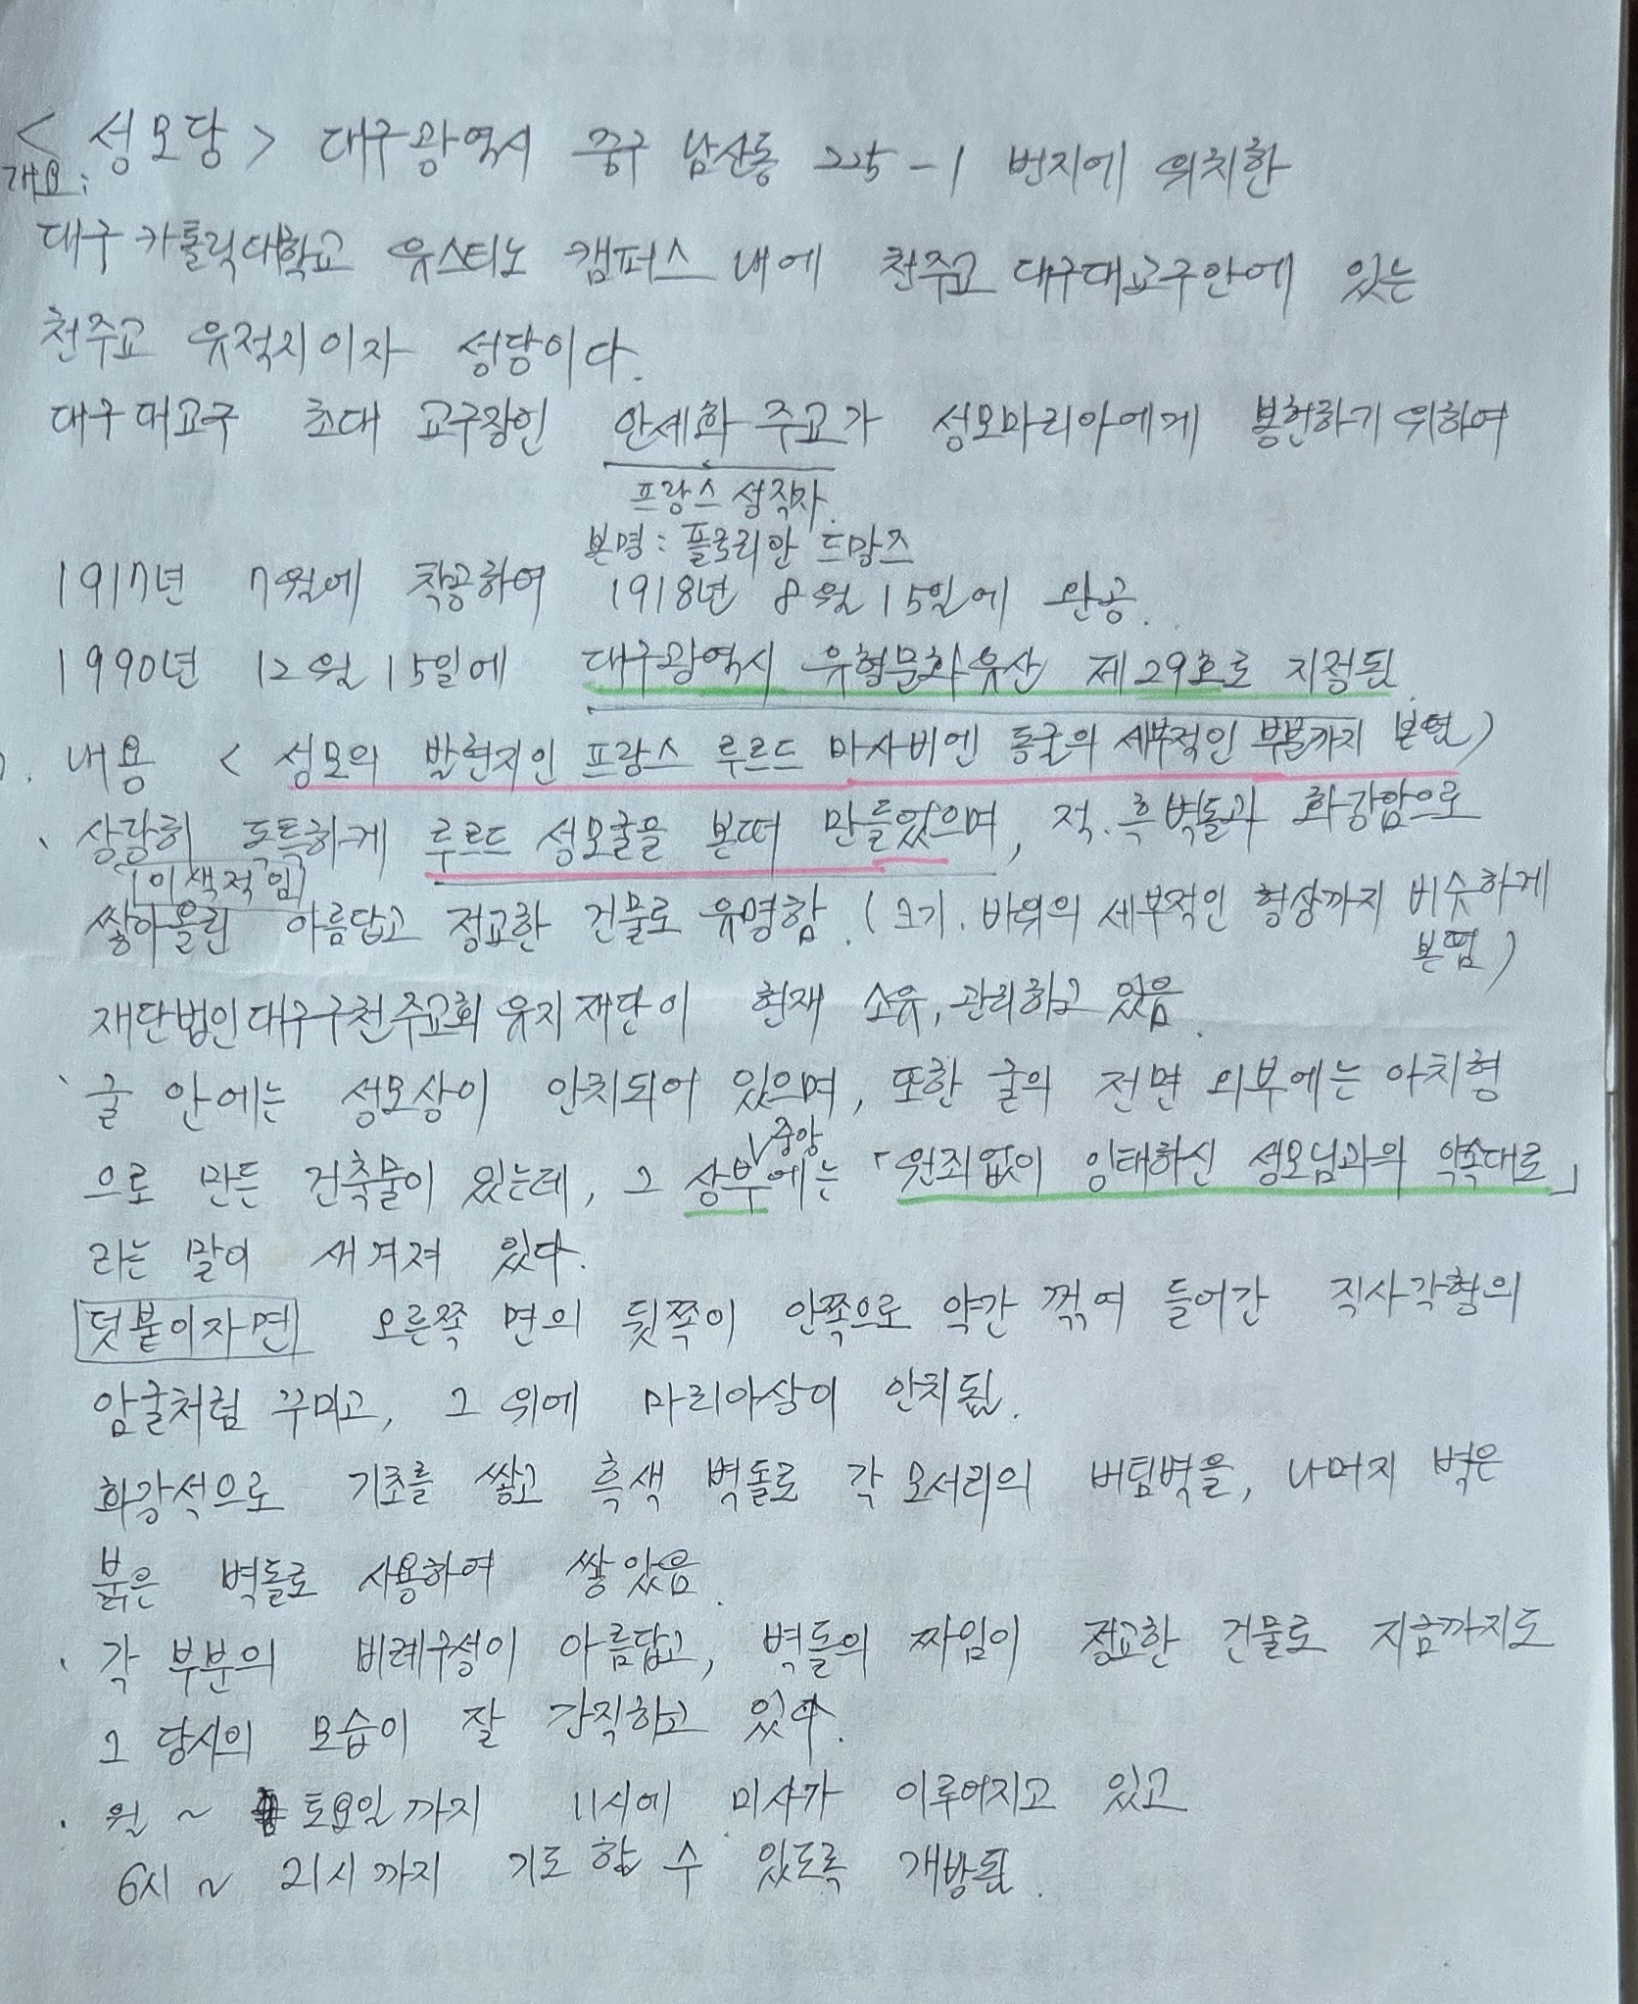 < 성모당 > 대구광역시 중구 남산동 225-1 번지에 위치한
개요:
대구카톨릭대학교 유스티노 캠퍼스 내에 천주교 대구대교구안에 있는
천주교 유적지이자 성당이다.
대구대교구 초대 교구장인 안세화 주교가 성모마리아에게 봉헌하기 위하여
프랑스 성직자.
본명: 플로리안 드망즈
1917년 7월에 착공하여 1918년 8월 15일에 완공.
1990년 12월 15일에 대구광역시 유형문화유산 제29호로 지정됨.
내용 < 성모의 발현지인 프랑스 루르드 마사비엔 동굴의 세부적인 부분까지 본떰)
상당히 독특하게 루르드 성모굴을 본떠 만들었으며, 적.흑벽돌과 화강암으로
(이색적임)
쌓아올린 아름답고 정교한 건물로 유명함. (크기. 바위의 세부적인 형상까지 비슷하게
본떰)
재단법인대구구천주교회유지재단이 현재 소유,관리하고 있음.
굴 안에는 성모상이 안치되어 있으며, 또한 굴의 전면 외부에는 아치형
중앙
으로 만든 건축물이 있는데, 그 상부에는 「원죄없이 잉태하신 성모님과의 약속대로」
라는 말이 새겨져 있다.
덧붙이자면 오른쪽 면의 뒷쪽이 안쪽으로 약간 꺾여 들어간 직사각형의
암굴처럼 꾸미고, 그 위에 마리아상이 안치됨.
화강석으로 기초를 쌓고 흑색 벽돌로 각 모서리의 버팀벽을, 나머지 벽은
붉은 벽돌로 사용하여 쌓았음.
각 부분의 비례구성이 아름답고, 벽돌의 짜임이 정교한 건물로 지금까지도
그 당시의 모습이 잘 간직하고 있다.
월 ~ 토요일까지 11시에 미사가 이루어지고 있고
6시 ~ 21시까지 기도 할 수 있도록 개방됨.